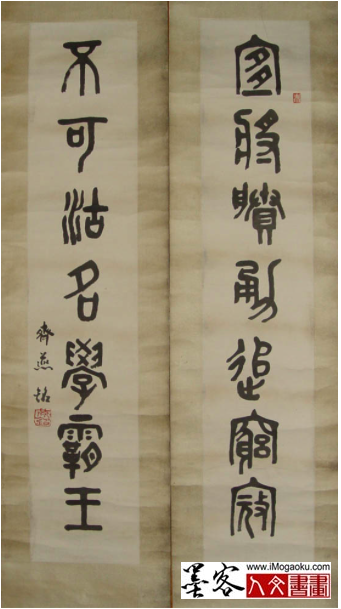 宜將賸勇追窮寇
不可沽名學霸王
齊燕銘
墨客
www.iMogaoku.com
人文書畫